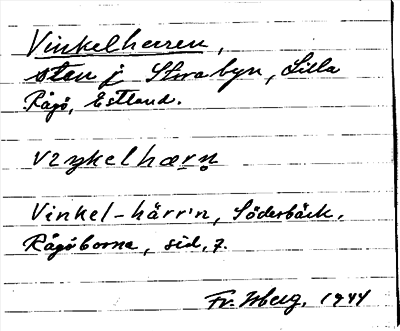 Vinkelherren,
sten i Stora byn, Lilla
Rågö, Estland.
vɪŋkelhærn̥
Vinkel-härr'n, Söderbäck,
Rågöborna, sid, 7.
Fr. Isberg, 1944